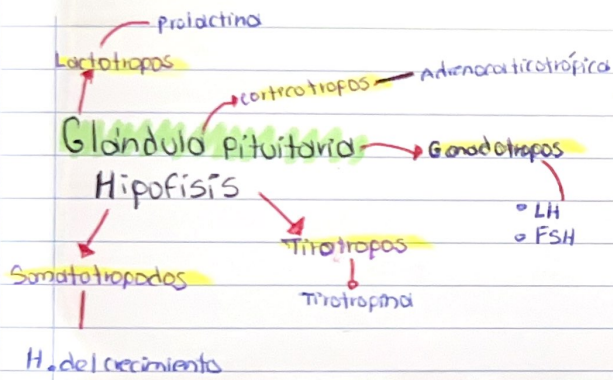 Prolactina
Lactotropos
corticotropos
Adrenocorticotrópica
Glándula pituitaria
Gonadotropos
Hipofísis
LH
FSH
Tirotropos
Somatotropodos
Tirotropina
H. del crecimiento